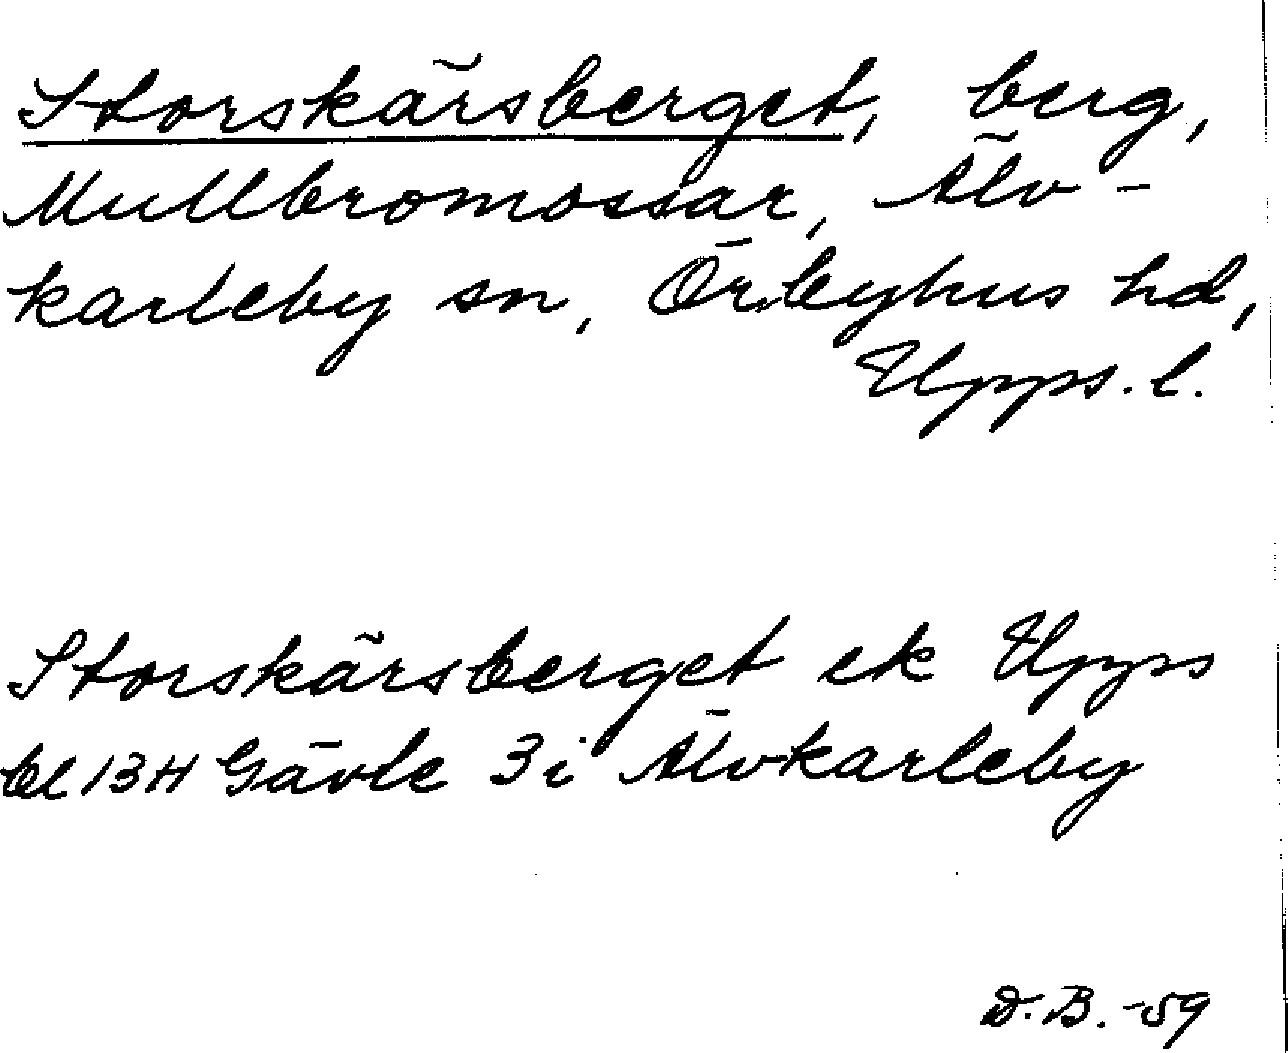 Storskärsberget, berg,
Mullbromossar, Älv-
karleby sn, Örbyhus hd,
Upps. l.
Storskärsberget ek Upps
bl 13H Gävle 3i Älvkarleby
D.B. -59